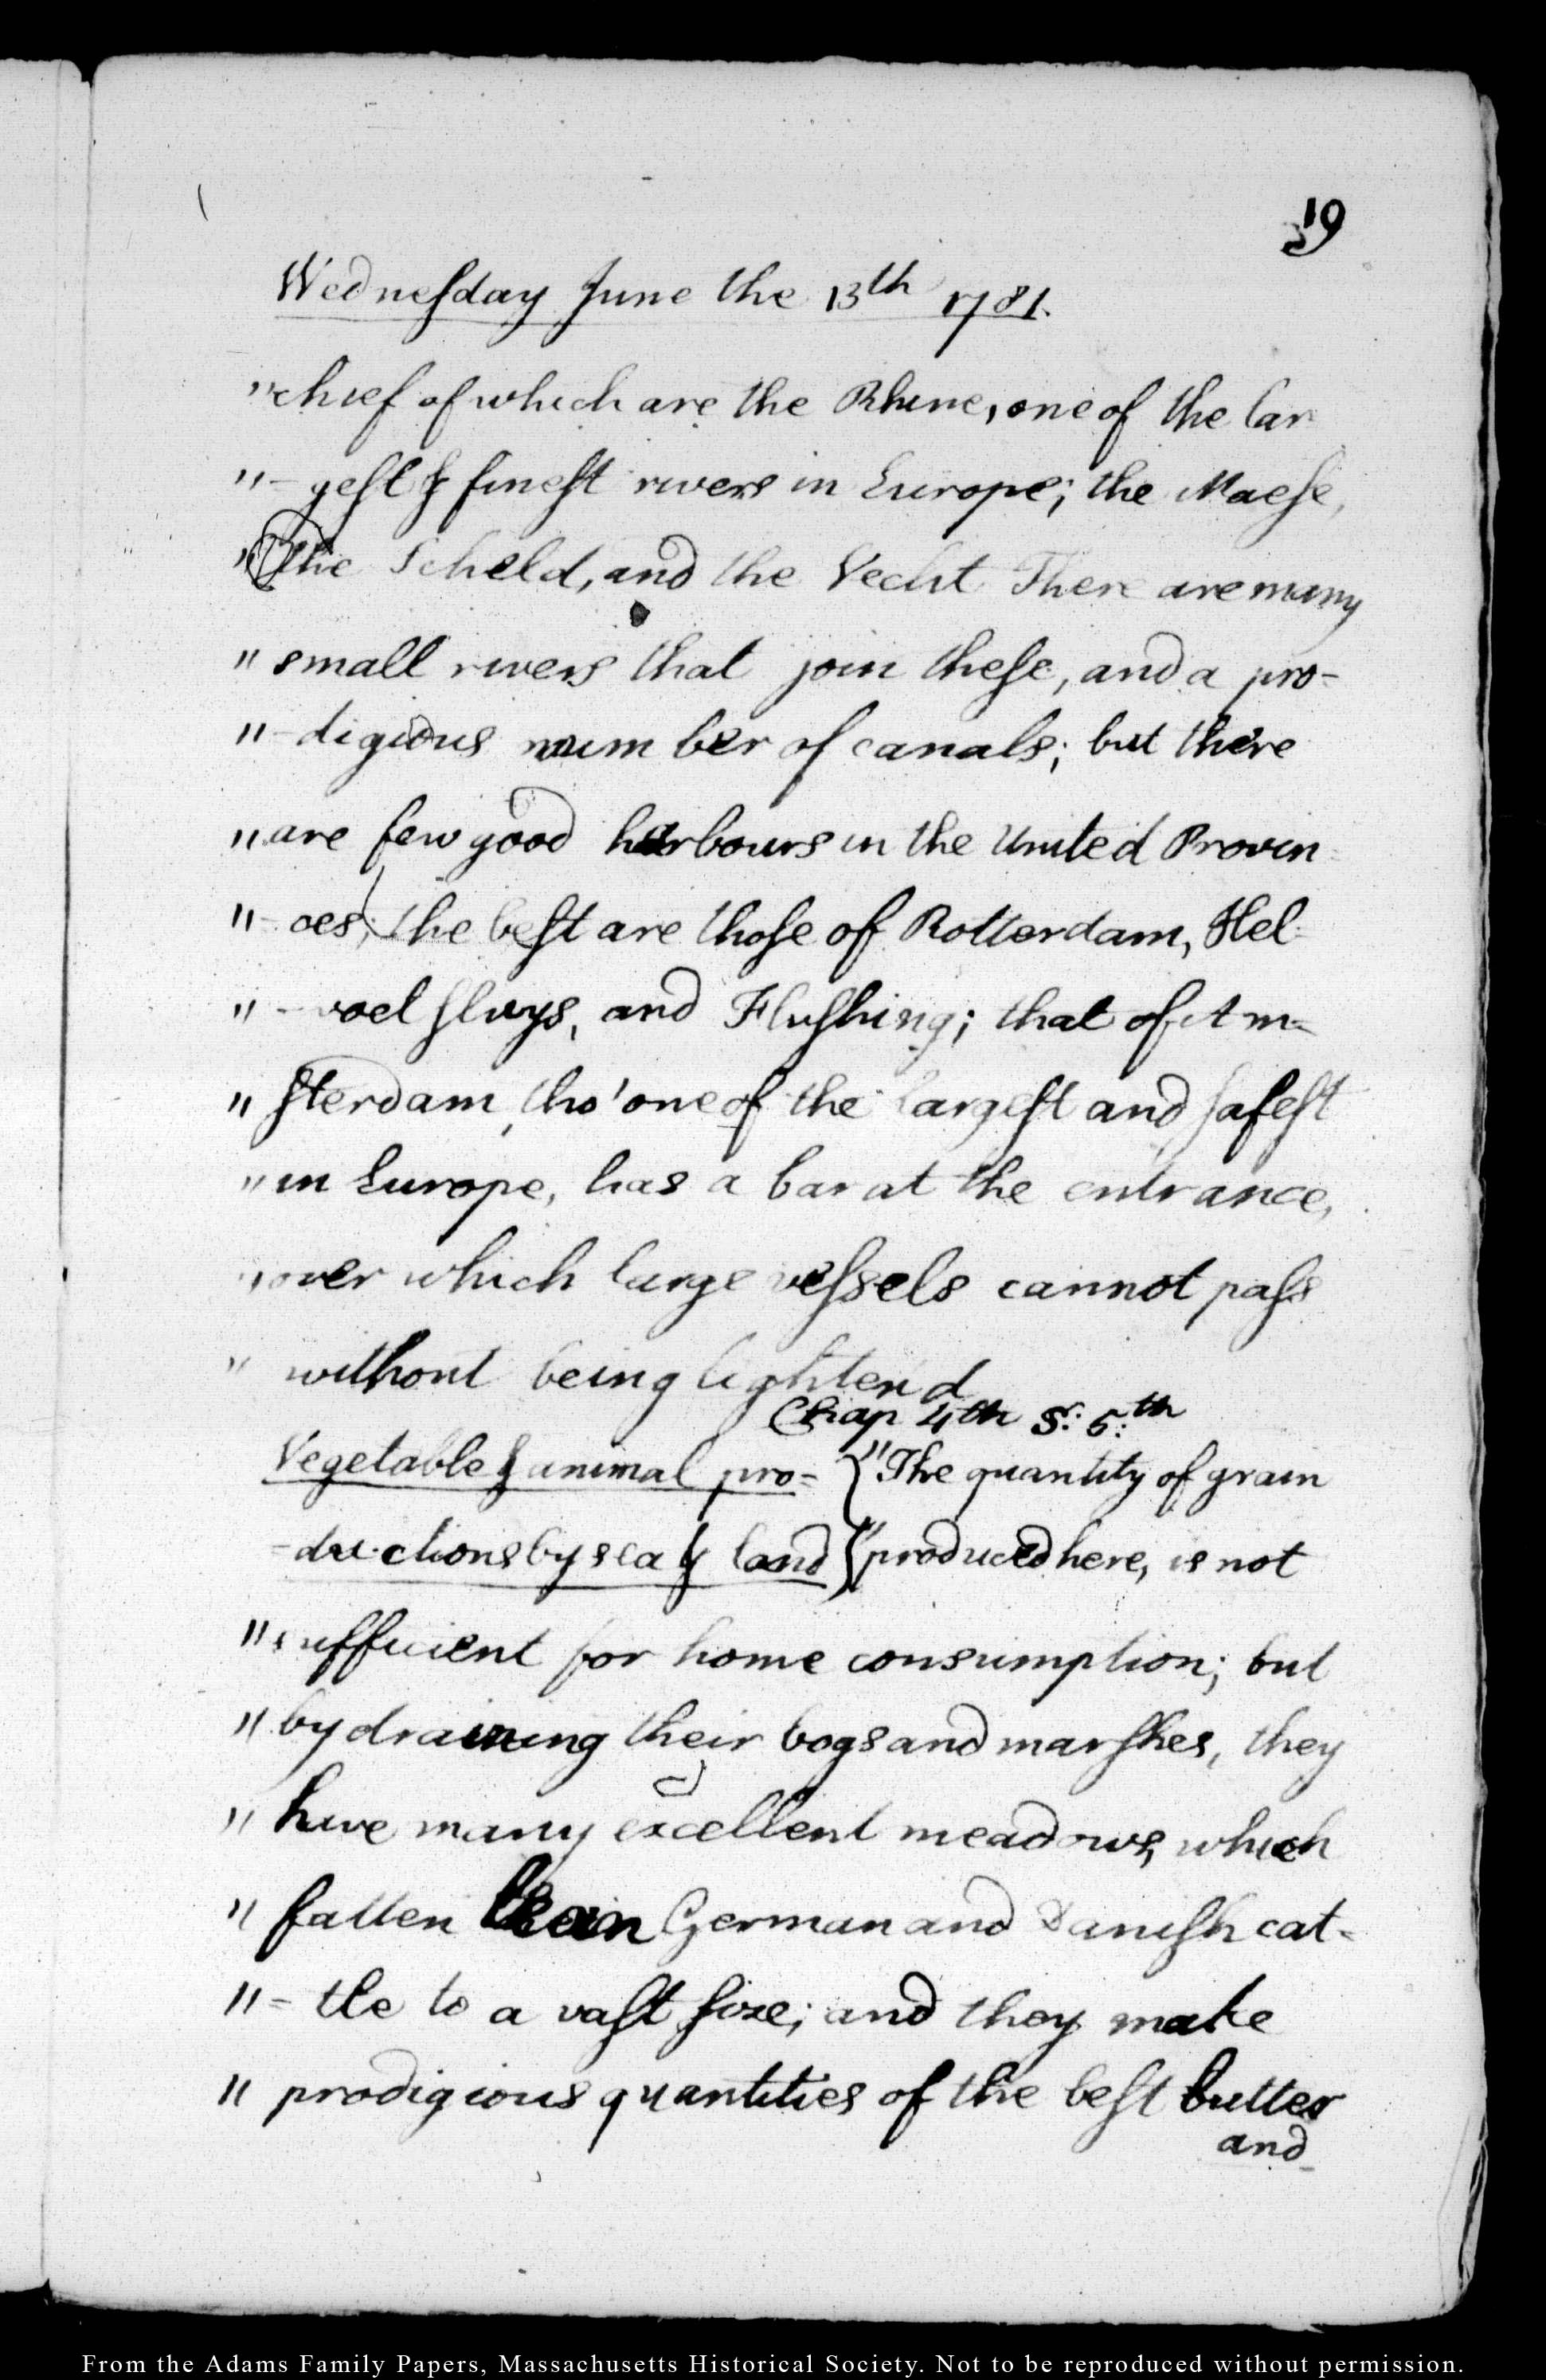 19
Wednesday June the 13th 1781.
"chief of which are the Rhine, one of the lar
"-gest & finest rivers in Europe; the Maese,
"the Scheld, and the Vecht There are many
"small rivers that join these, and a pro-
"-digious number of canals; but there
"are few good harbours in the United Provin=
"-ces; the best are those of Rotterdam, Hel-
"-voetsluys, and Flushing; that of Am=
"sterdam, tho' one of the largest and safest
"in Europe, has a bar at the entrance,
"over which large vessels cannot pass
"without being lighten'd
Chap 4th S: 5:th
Vegetable & animal pro= } "The quantity of grain
-ductions by sea & land } "produced here, is not
"sufficient for home consumption; but
"by draining their bogs and marshes, they
"have many excellent meadows, which
"fatten lean German and Danish cat-
"=tle to a vast size; and they make
"prodigious quantities of the best butter
and
From the Adams Family Papers, Massachusetts Historical Society. Not to be reproduced without permission.